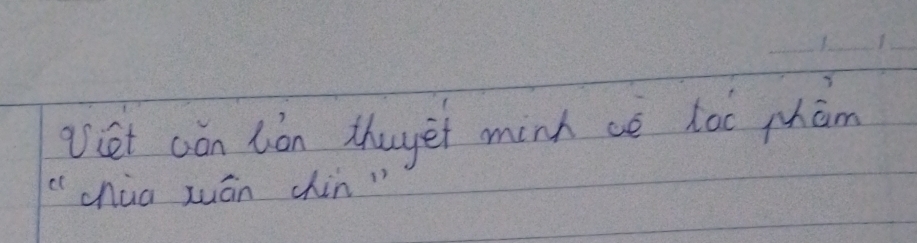 Viết văn bản thuyết minh về tác phẩm
"chùa xuân chín"